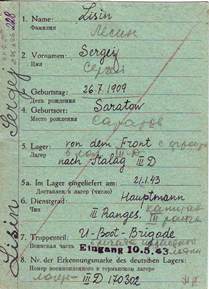 Lisin Sergej
1. Name: Lisin
Фамилия Лисин
2. Vornamen: Sergej
Имя Сергей
3. Geburtstag: 26.7.1909
День рождения
4. Geburtsort: Saratow
Место рождения Саратов
5. Lager: von dem Front
Лагер
nach Stalag III D
5a. Im Lager eingeliefert am: 21.1.43
Доставлен в лагер (число):
6. Dienstgrad: Hauptmann
Чин III Ranges, III ранга
7. Truppenteil: U-Boot-Brigade
Войсковая часть
Eingang 10.5.43
8. Nr. der Erkennungsmarke des deutschen Lagers:
Номер военнопленного в германском лагере
III D 170302